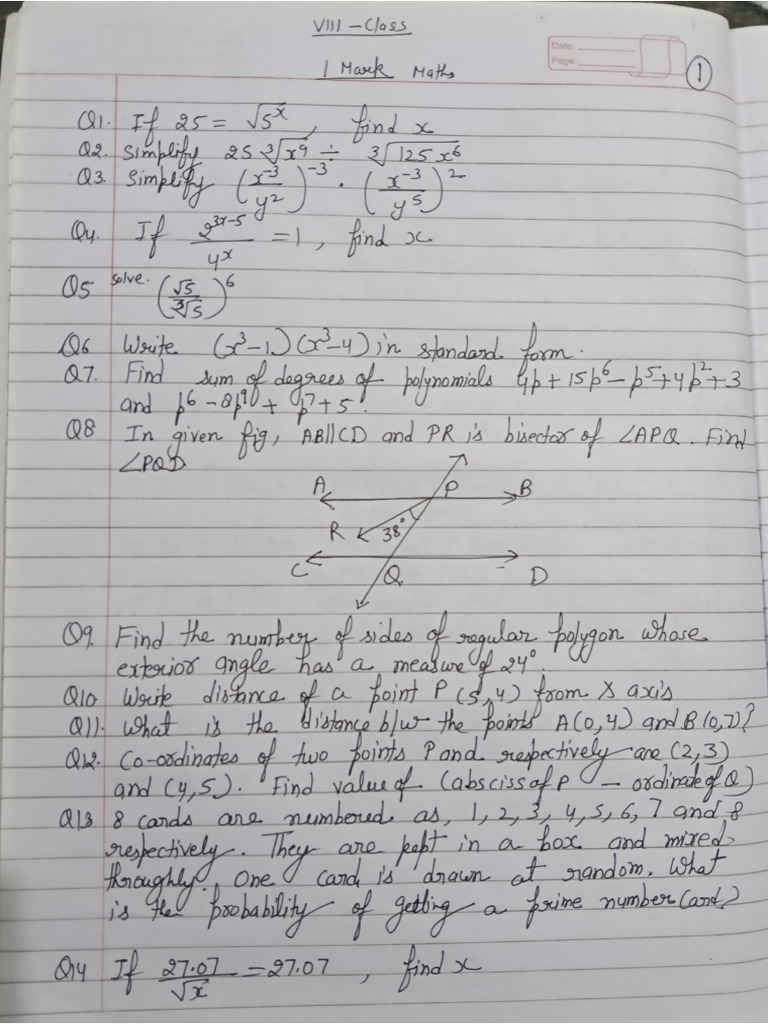 VIII - Class
Date:
Page:
1 Mark Maths
①
Q1. If 25 = √5^x, find x
Q2. Simplify 25 ∛x⁹ ÷ ∛125x⁶
Q3. Simplify (x⁻³/y²)⁻³ · (x⁻³/y⁵)²
Q4. If 2^(3x-5)/4^x = 1, find x
Q5 solve. (√5/∛5)⁶
Q6 Write (x³-1)(x³-4) in standard form.
Q7. Find sum of degrees of polynomials 4p + 15p⁶ - p⁵ + 4p² + 3
and p⁶ - 8p⁹ + p⁷ + 5.
Q8 In given fig, AB||CD and PR is bisector of ∠APQ. Find
∠PQD
A P B
R 38°
C Q D
Q9. Find the number of sides of regular polygon whose
exterior angle has a measure of 24°.
Q10 Write distance of a point P(5,4) from X axis
Q11. What is the distance b/w the points A(0,4) and B(0,7)?
Q12. Co-ordinates of two points P and respectively are (2,3)
and (4,5). Find value of (absciss of P - ordinate of Q)
Q13 8 cards are numbered as, 1, 2, 3, 4, 5, 6, 7 and 8
respectively. They are kept in a box and mixed
throughly. One card is drawn at random. What
is the probability of getting a prime number card?
Q14 If 27.07/√x = 27.07, find x